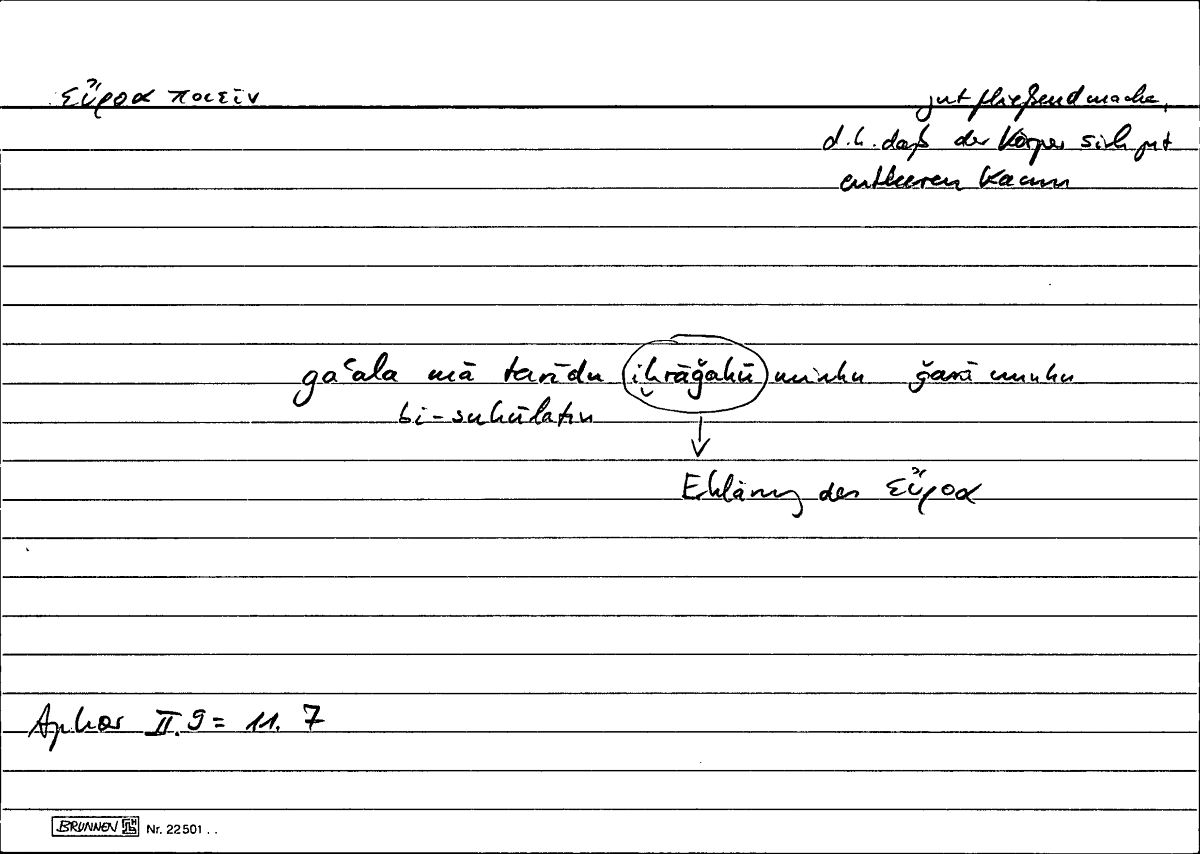 εὔροα ποιεῖν
gut fließend mache,
d.h. daß der Körper sich gut
entleeren kann
gaʿala mā tarīdu iḫrāǧahū minhu ǧarā minhu
bi-suhūlatin
Erklärung des εὔροα
Aphor II.9 = 11. 7
BRUNNEN Nr. 22501 . .